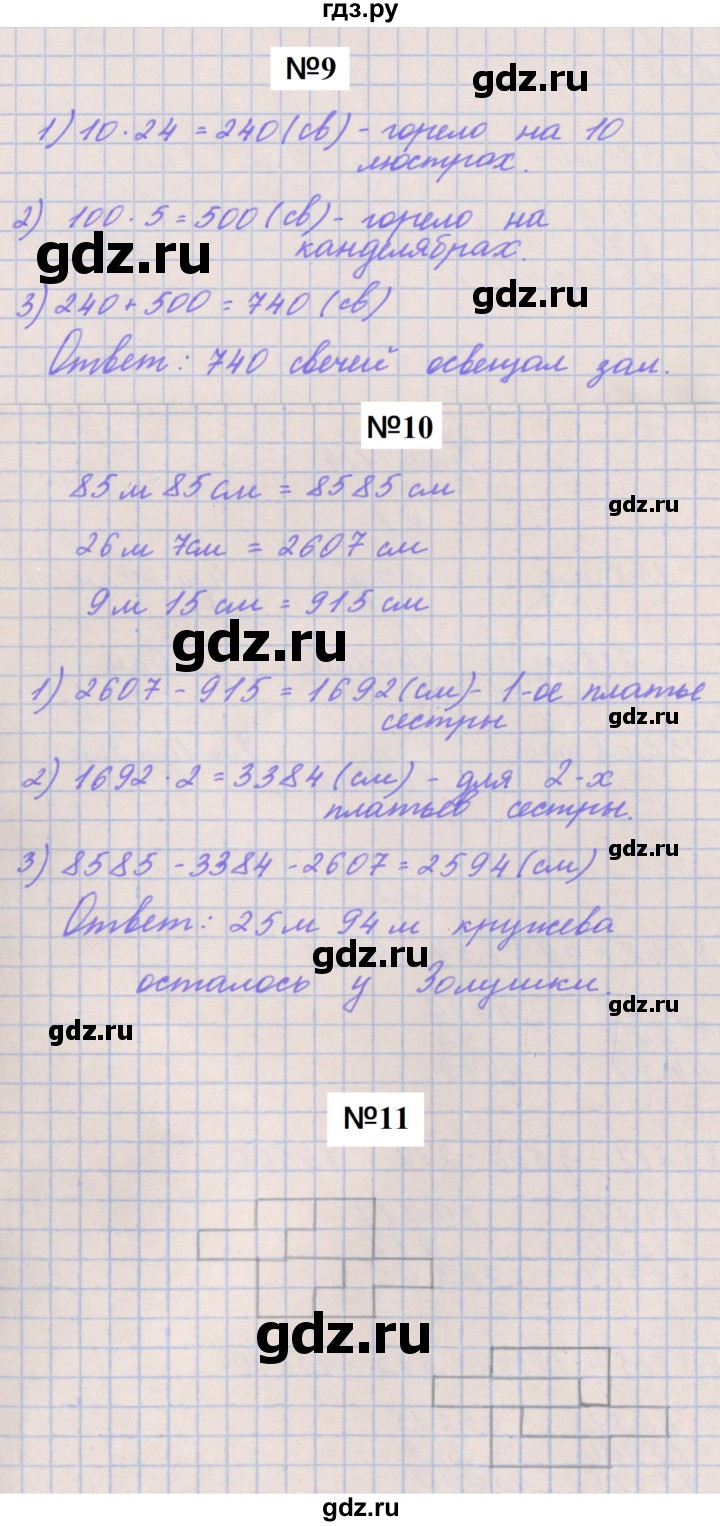 гдз.ру
№9
gdz.ru
1) 10 · 24 = 240 (св) - горело на 10
люстрах.
2) 100 · 5 = 500 (св) - горело на
канделябрах.
gdz.ru
3) 240 + 500 = 740 (св)
gdz.ru
Ответ: 740 свечей освещал зал.
№10
85 м 85 см = 8585 см
gdz.ru
26 м 7 см = 2607 см
9 м 15 см = 915 см
gdz.ru
1) 2607 - 915 = 1692 (см) - 1-ое платье
сестры
gdz.ru
2) 1692 · 2 = 3384 (см) - для 2-х
платьев сестры.
gdz.ru
3) 8585 - 3384 - 2607 = 2594 (см)
Ответ: 25 м 94 м кружева
gdz.ru
осталось у Золушки.
gdz.ru
gdz.ru
№11
gdz.ru
gdz.ru